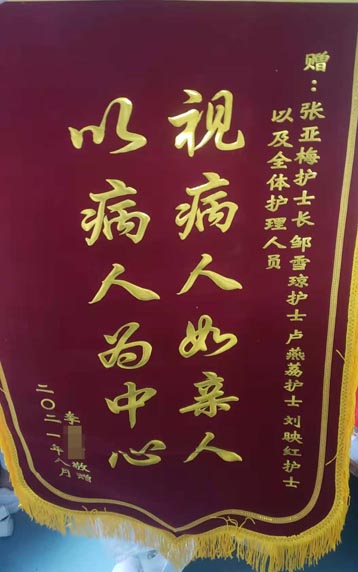 赠：张亚梅护士长邹雪琼护士 卢燕荔护士 刘映红护士
以及全体护理人员
视病人如亲人
以病人为中心
李 敬赠
二〇二一年八月